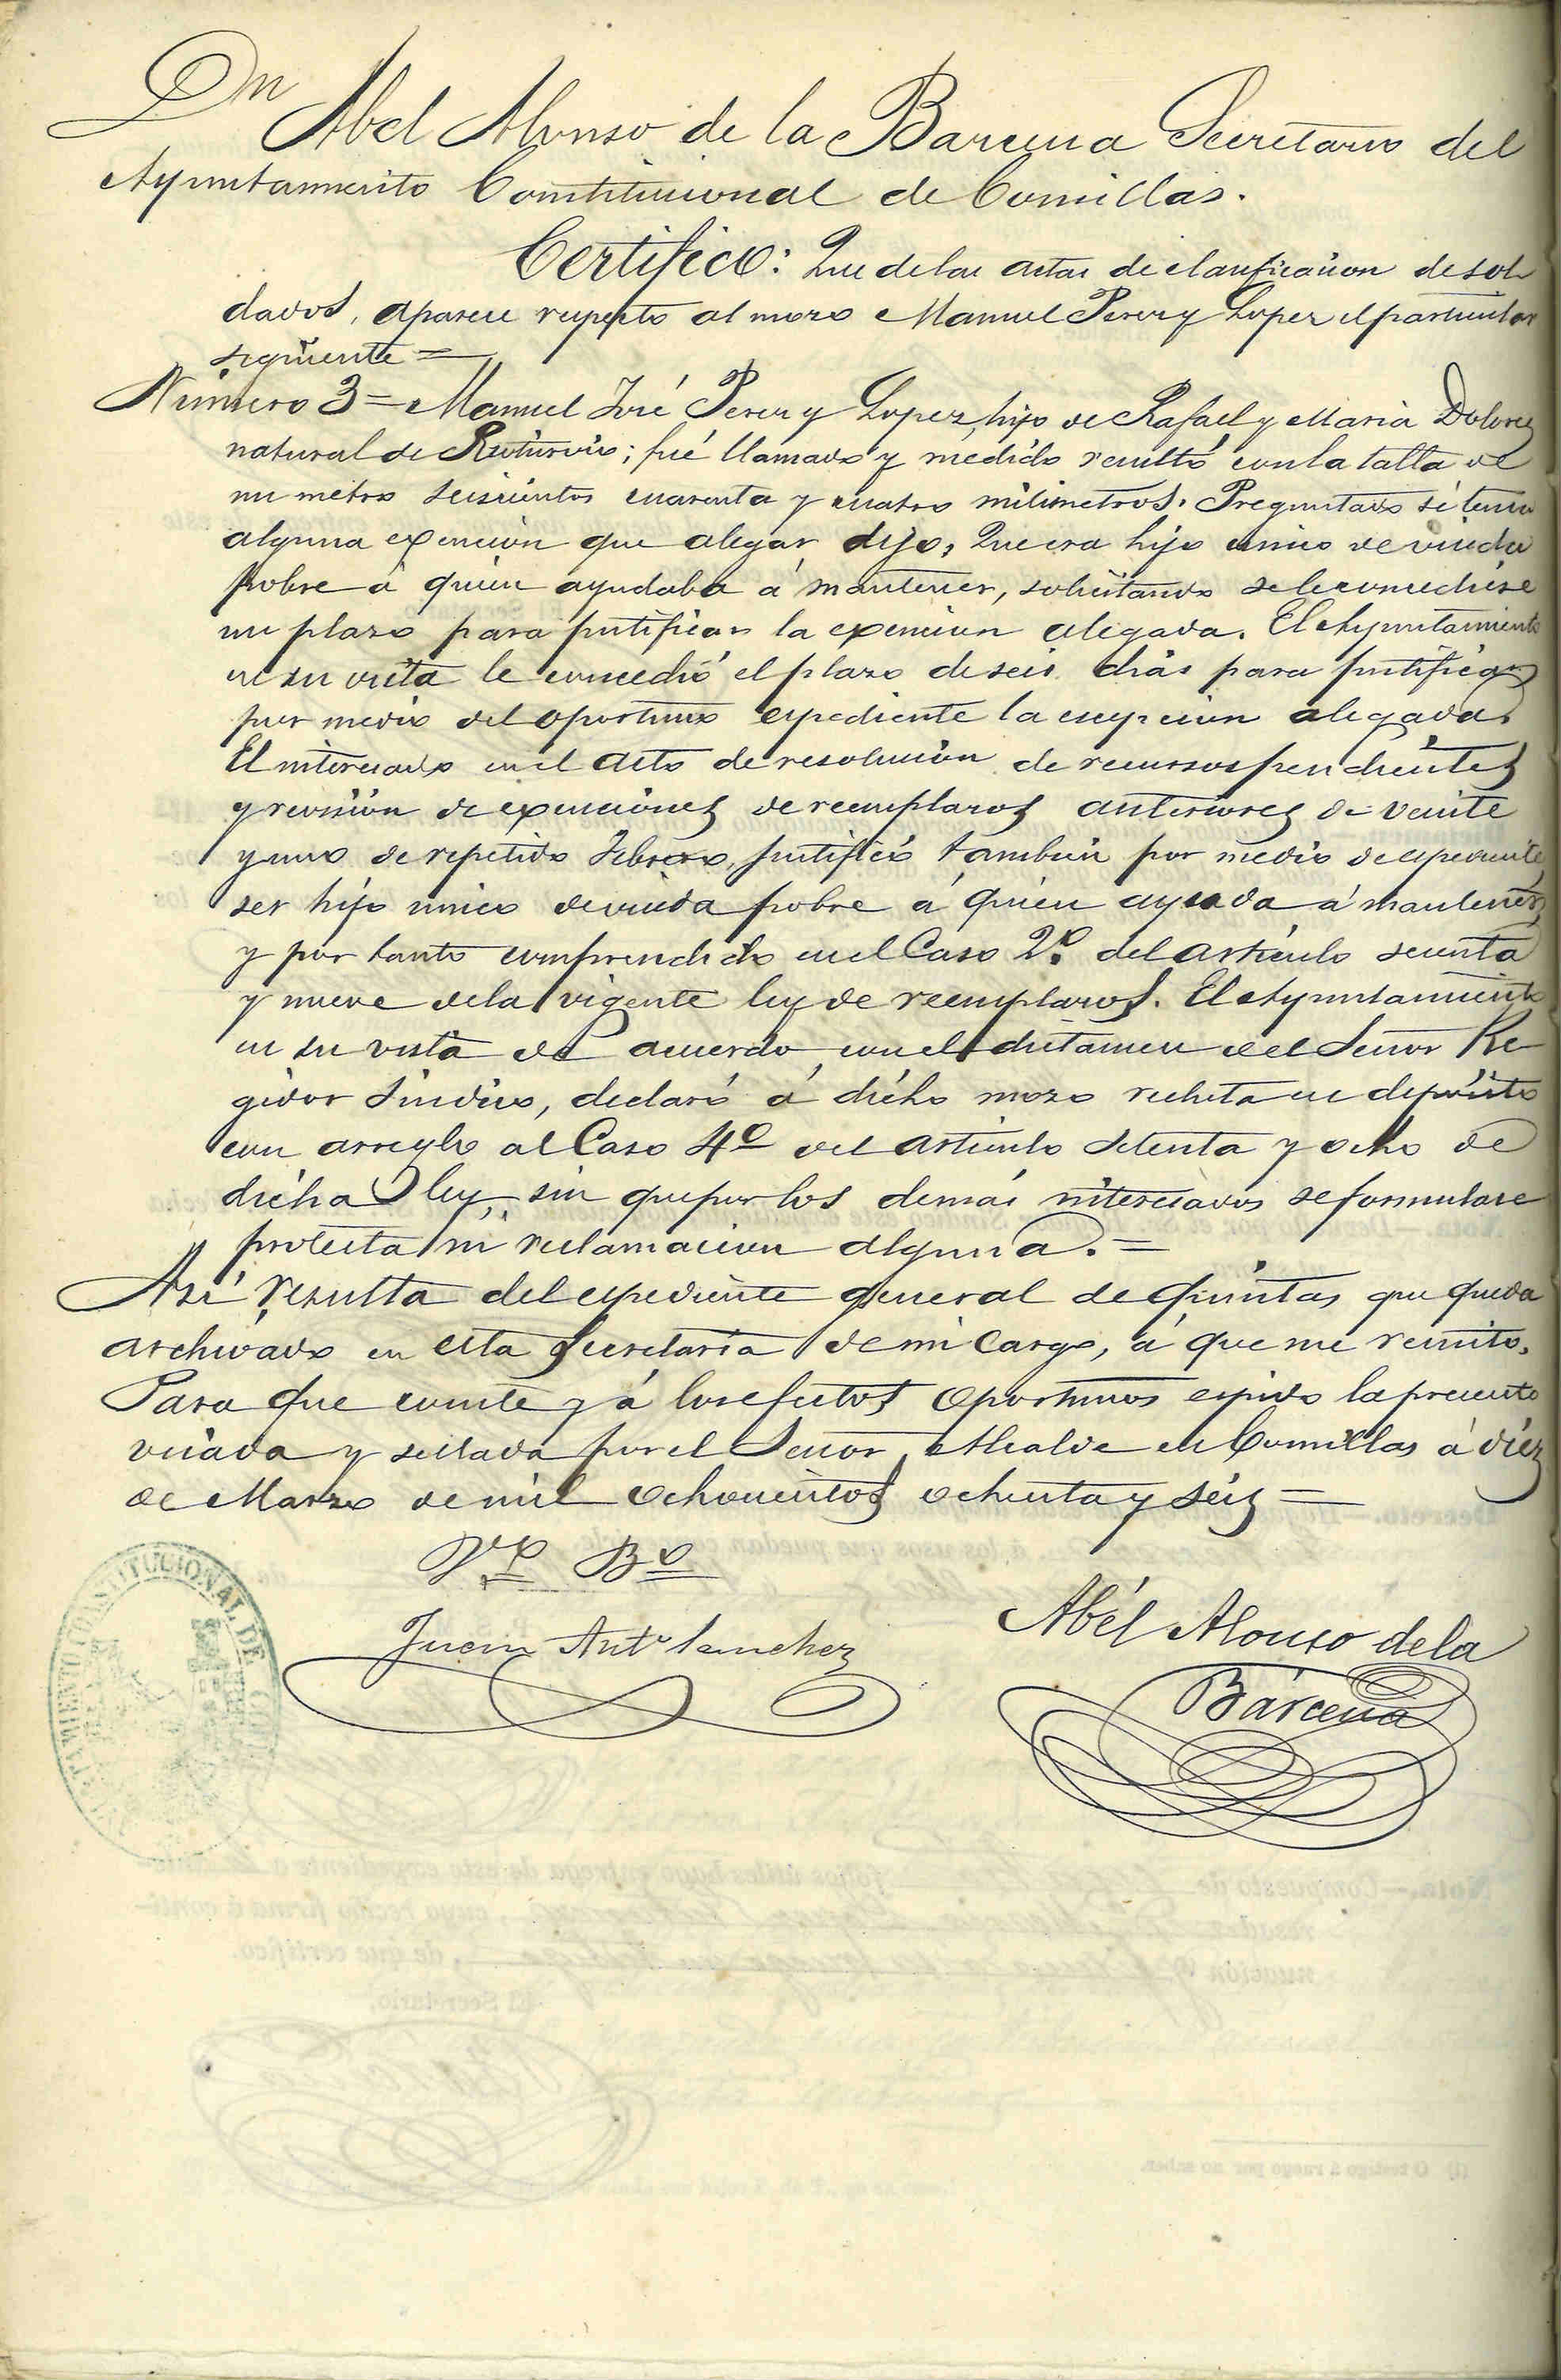 Dn Abel Alonso de la Barcena Secretario del
Ayuntamiento Constitucional de Comillas.
Certifico: Que de las actas de clasificacion de sol-
dados, aparece respecto al mozo Manuel Perez y Lopez el particular
siguiente =
Número 3 = Manuel José Perez y Lopez, hijo de Rafael y Maria Dolores
natural de Ruturvio; fué llamado y medido resultó con la talla de
un metro seiscientos cuarenta y cuatro milimetros. Preguntado si tenia
alguna exencion que alegar, dijo, Que era hijo unico de viuda
pobre á quien ayudaba á mantener, solicitando se le concediese
un plazo para justificar la exencion alegada. El Ayuntamiento
en su vista le concedió el plazo de seis dias para justificar
por medio del oportuno espediente la escepcion alegada.
El interesado en el acto de resolucion de recursos pendientes
y revision de exenciones de reemplazos anteriores de veinte
y uno de repetido Febrero, justificó tambien por medio de espediente
ser hijo unico de viuda pobre á quien ayuda á mantener,
y por tanto comprendido en el Caso 2º. del artículo sesenta
y nueve de la vigente ley de reemplazos. El Ayuntamiento
en su vista de acuerdo con el dictamen del Señor Re-
gidor Sindico, declaró á dicho mozo recluta en depósito
con arreglo al Caso 4º del artículo setenta y ocho de
dicha ley, sin que por los demás interesados se formulase
protesta ni reclamacion alguna. =
Así resulta del espediente general de quintas que queda
archivado en esta Secretaría de mi cargo, á que me remito.
Para que conste y á los efectos oportunos espido la presente
visada y sellada por el Señor Alcalde en Comillas á diez
de Marzo de mil ochocientos ochenta y seis =
Vº Bº
Juan Antº Sanchez
Abél Alonso de la
Bárcena
AYUNTAMIENTO CONSTITUCIONAL DE CO